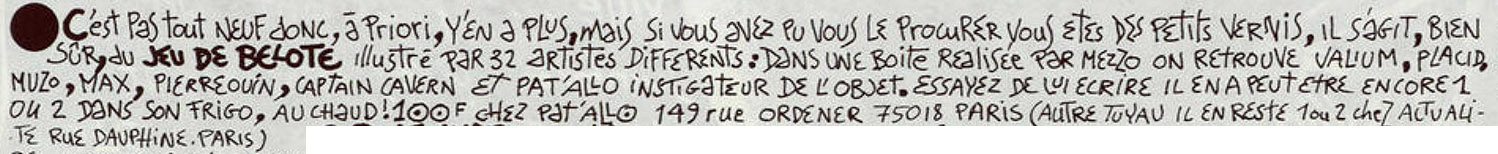 C'est Pas tout NEUF dONC, à Priori, Y'EN a PLUS, mais Si vous avez Pu Vous LE ProcuRER vous êtes DES PETITS VERNiS, iL S'AGiT, BiEN
SÛR, du JEU DE BELOTE illustré PAR 32 aRtistes DiFFERENTS : DANS UNE Boîte Réalisée PAR MEZZO ON RETROUVE VALIUM, PLACID,
MUZO, MAX, PIERREOUIN, CAPTAIN CAVERN ET PAT'ALLO iNSTiGATEUR DE L'OBJET. ESSAYEZ DE LUI ECRIRE IL EN A PEUT ETRE ENCORE 1
OU 2 DANS SON FRIGO, AU CHAUD ! 100 F CHEZ Pat'ALLO 149 rue ORDENER 75018 PARIS (AUTRE TUYAU IL EN RESTE 1 ou 2 chez ACTUALI-
TE RUE DAUPHINE. PARIS)